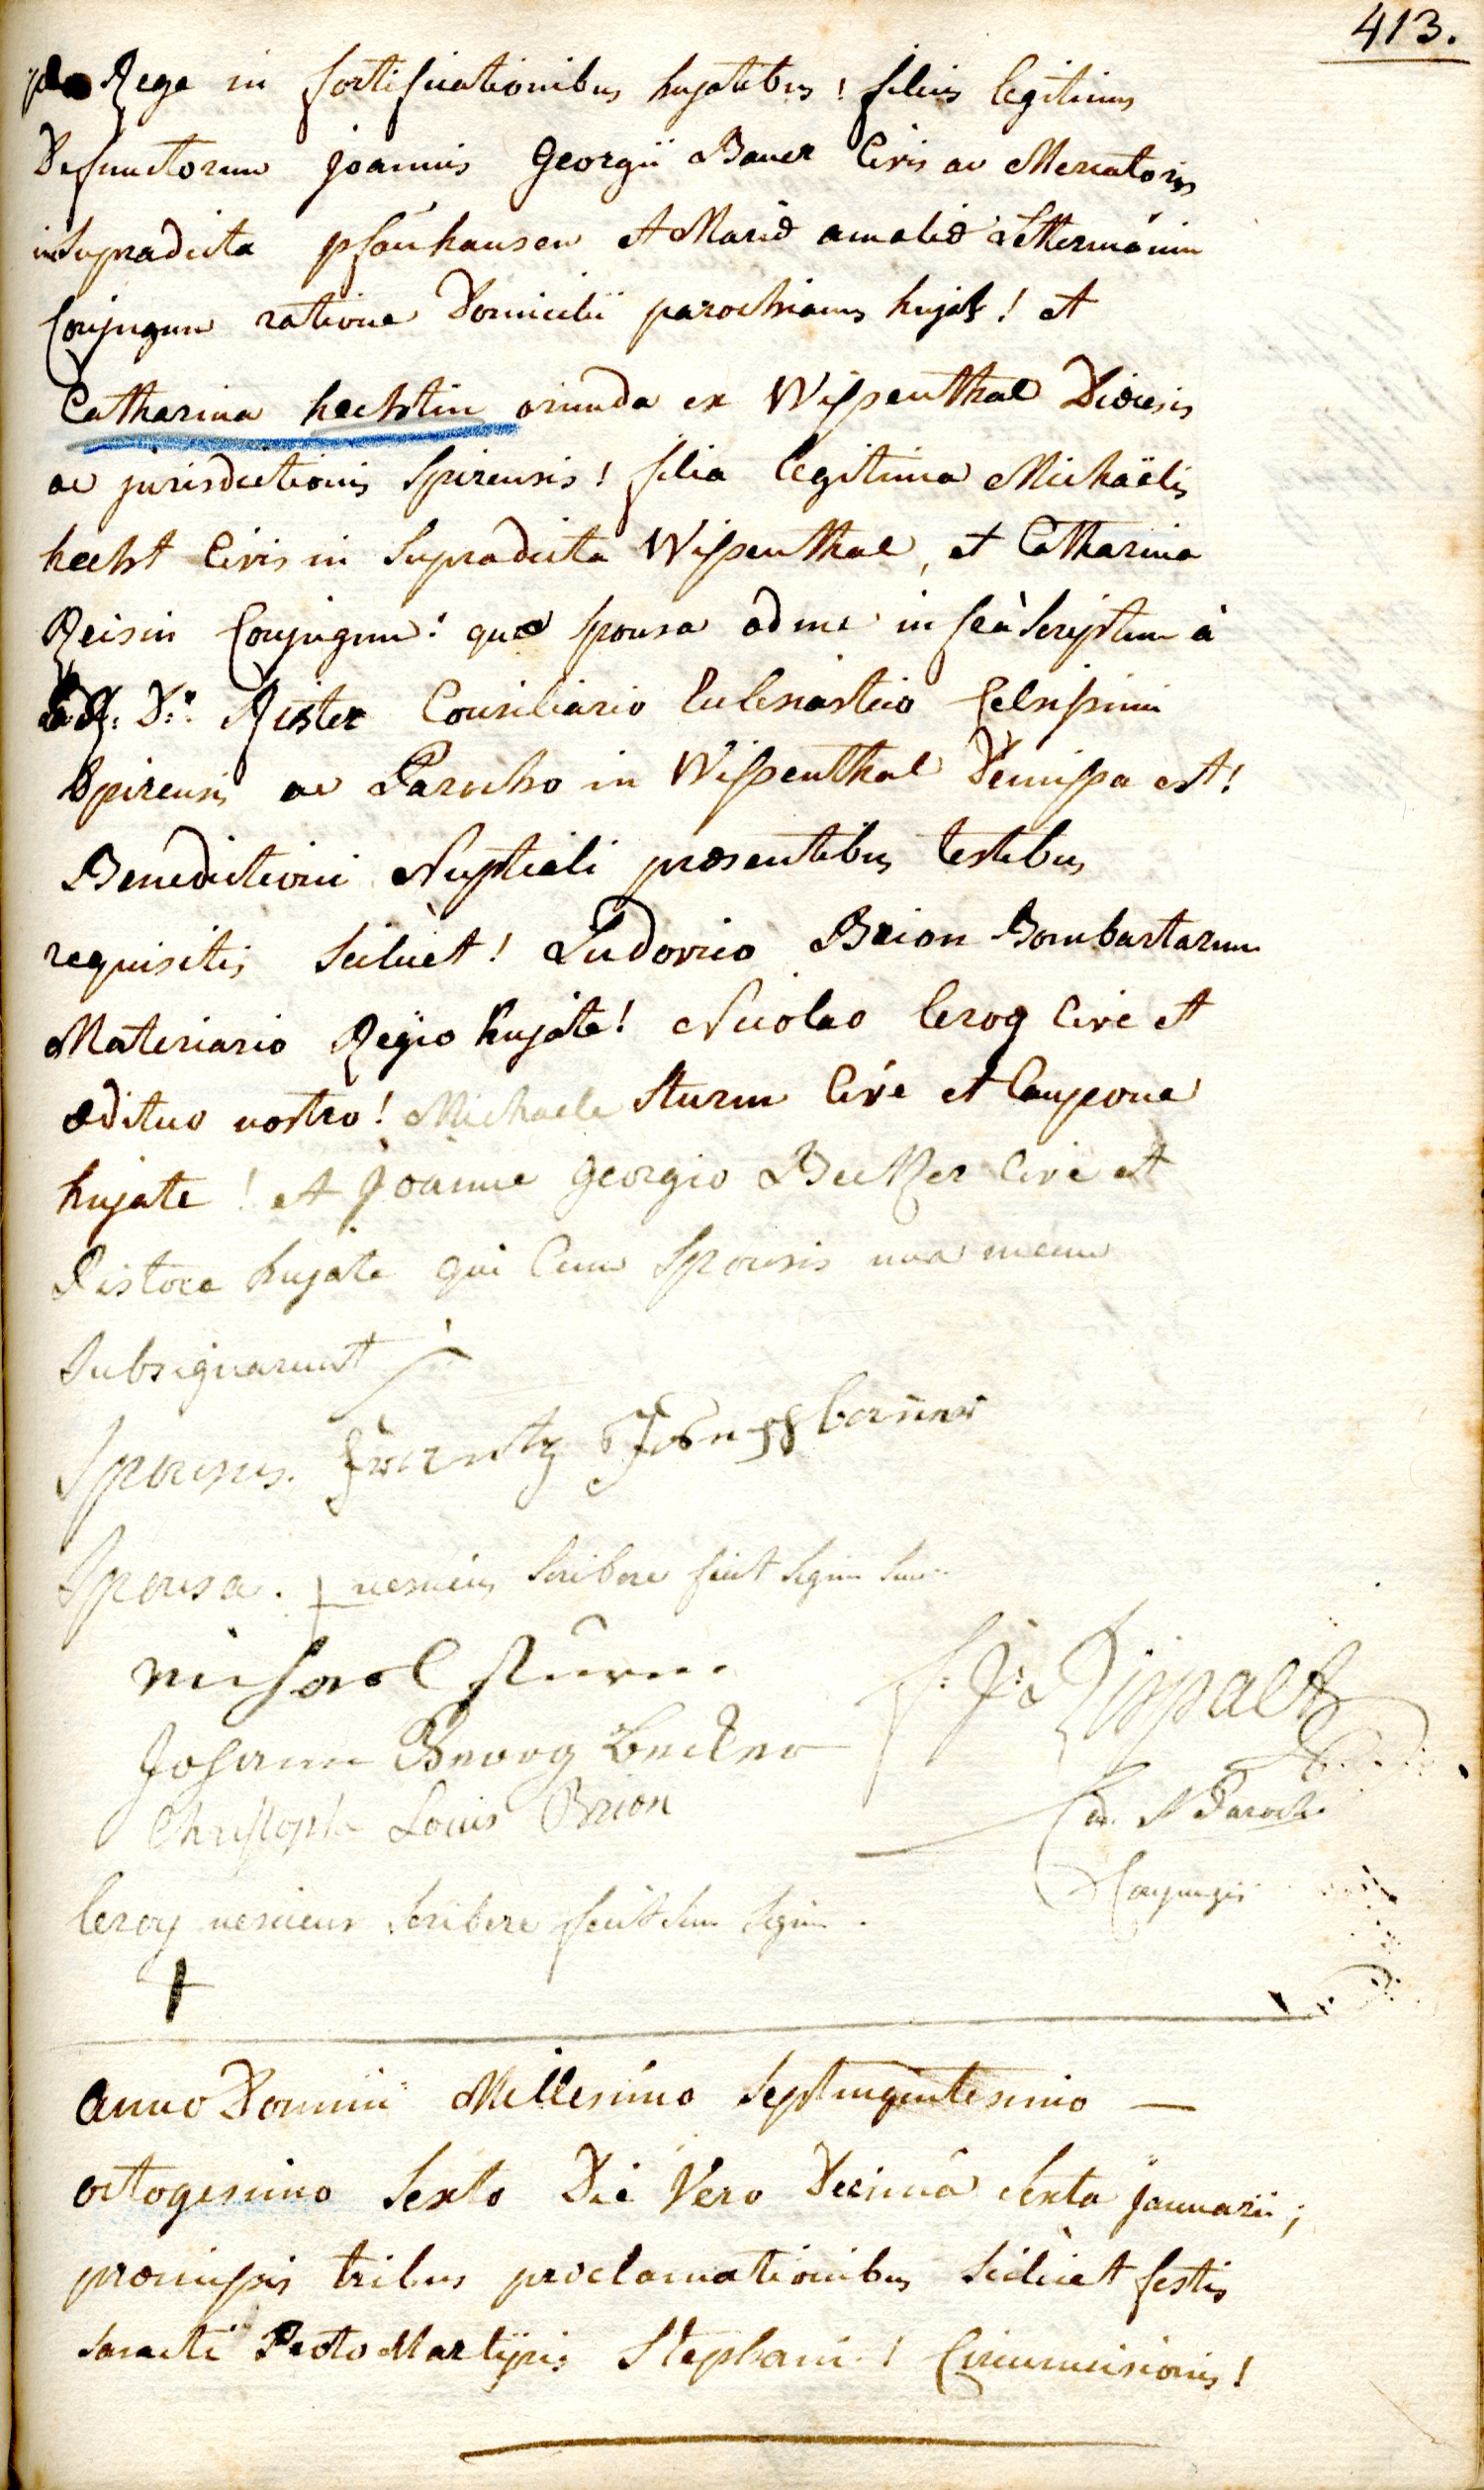 413.
Rege in fortificationibus hujatibus! filius legitimus
Defunctorum joannis Georgii Bauer Civis ac Mercatoris
in Supradicta pfafthausen et Mariæ amaliæ
Conjugum ratione Domicilii parochianus hujas! et
Catharina hechtin oriunda ex Wissenthal Diœcesis
ac jurisdictionis Spirensis! filia legitima Michaëlis
hecht Civis in Supradicta Wissenthal, et Catharina
Reisin Conjugum! quæ Sponsa ad me infrà Scriptum à
R: D: Rister Consiliario Eclesiastico Celsissimi
Spirensis ac Parocho in Wissenthal Demissa est!
Benedictioni Nuptiali præsentibus testibus
requisitis Scilicèt! Ludovico Brion Bombartarum
Materiario Regio hujate! Nicolao leroy Cive et
ædituo nostro! Michaele Sturm Cive et Caupone
hujate! et Joanne georgio Becker Cive et
Pistore hujate qui Cum Sponsis una mecum
Subsignarunt
Sponsus. Frantz Joseph bauer
Sponsa. + nesciens Scribere fecit Signum Suum
michael sturm
F: J: Rippalt
Johann Georg becker
Christoph Louis Brion
Parochi
leroy nesciens Scribere fecit Suum Signum.
+
anno Domini Millesimo Septingentesimo —
octogesimo Sexto Die Vero Decimâ Sexta januarii;
præmissis tribus proclamationibus Scilicèt festis
Sancti ProtoMartyris Stephani! Circumcisionis!